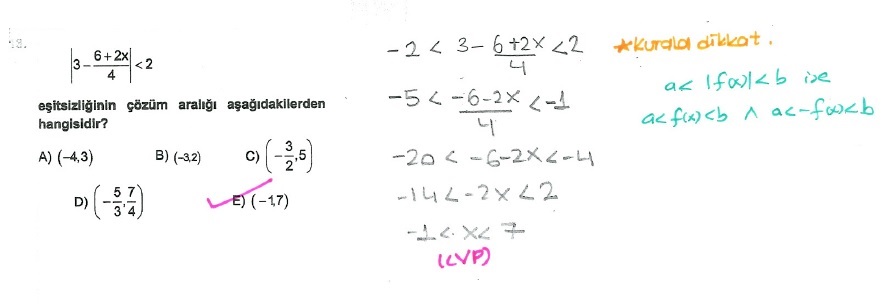 13.
|3 - (6+2x)/4| < 2
eşitsizliğinin çözüm aralığı aşağıdakilerden
hangisidir?
A) (-4,3) B) (-3,2) C) (-3/2, 5)
D) (-5/3, 7/4) E) (-1,7)
-2 < 3 - (6+2x)/4 < 2
-5 < (-6-2x)/4 < -1
-20 < -6-2x < -4
-14 < -2x < 2
-1 < x < 7
(CVP)
*Kurala dikkat.
a < |f(x)| < b ise
a < f(x) < b ∧ a < -f(x) < b